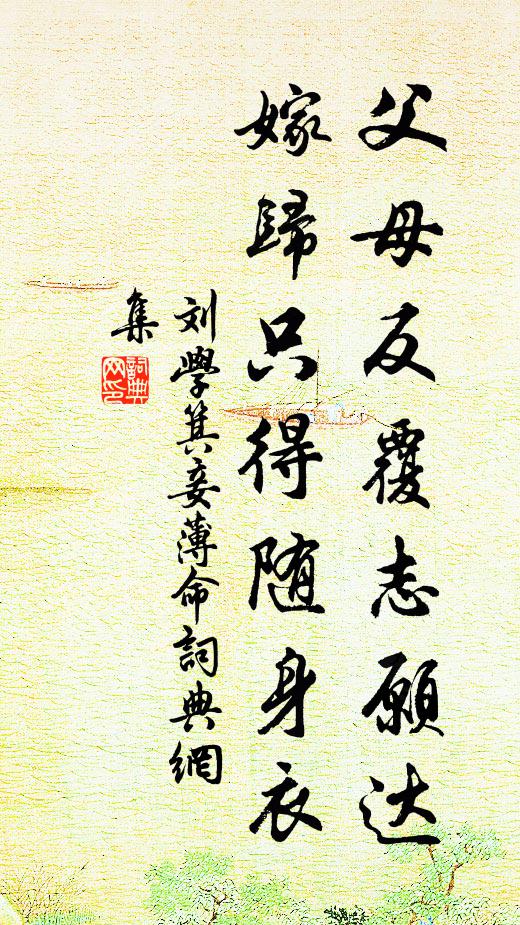 父母反覆志愿达
嫁歸只得随身衣
刘學箕妾薄命詞典網
集
詞典
网印